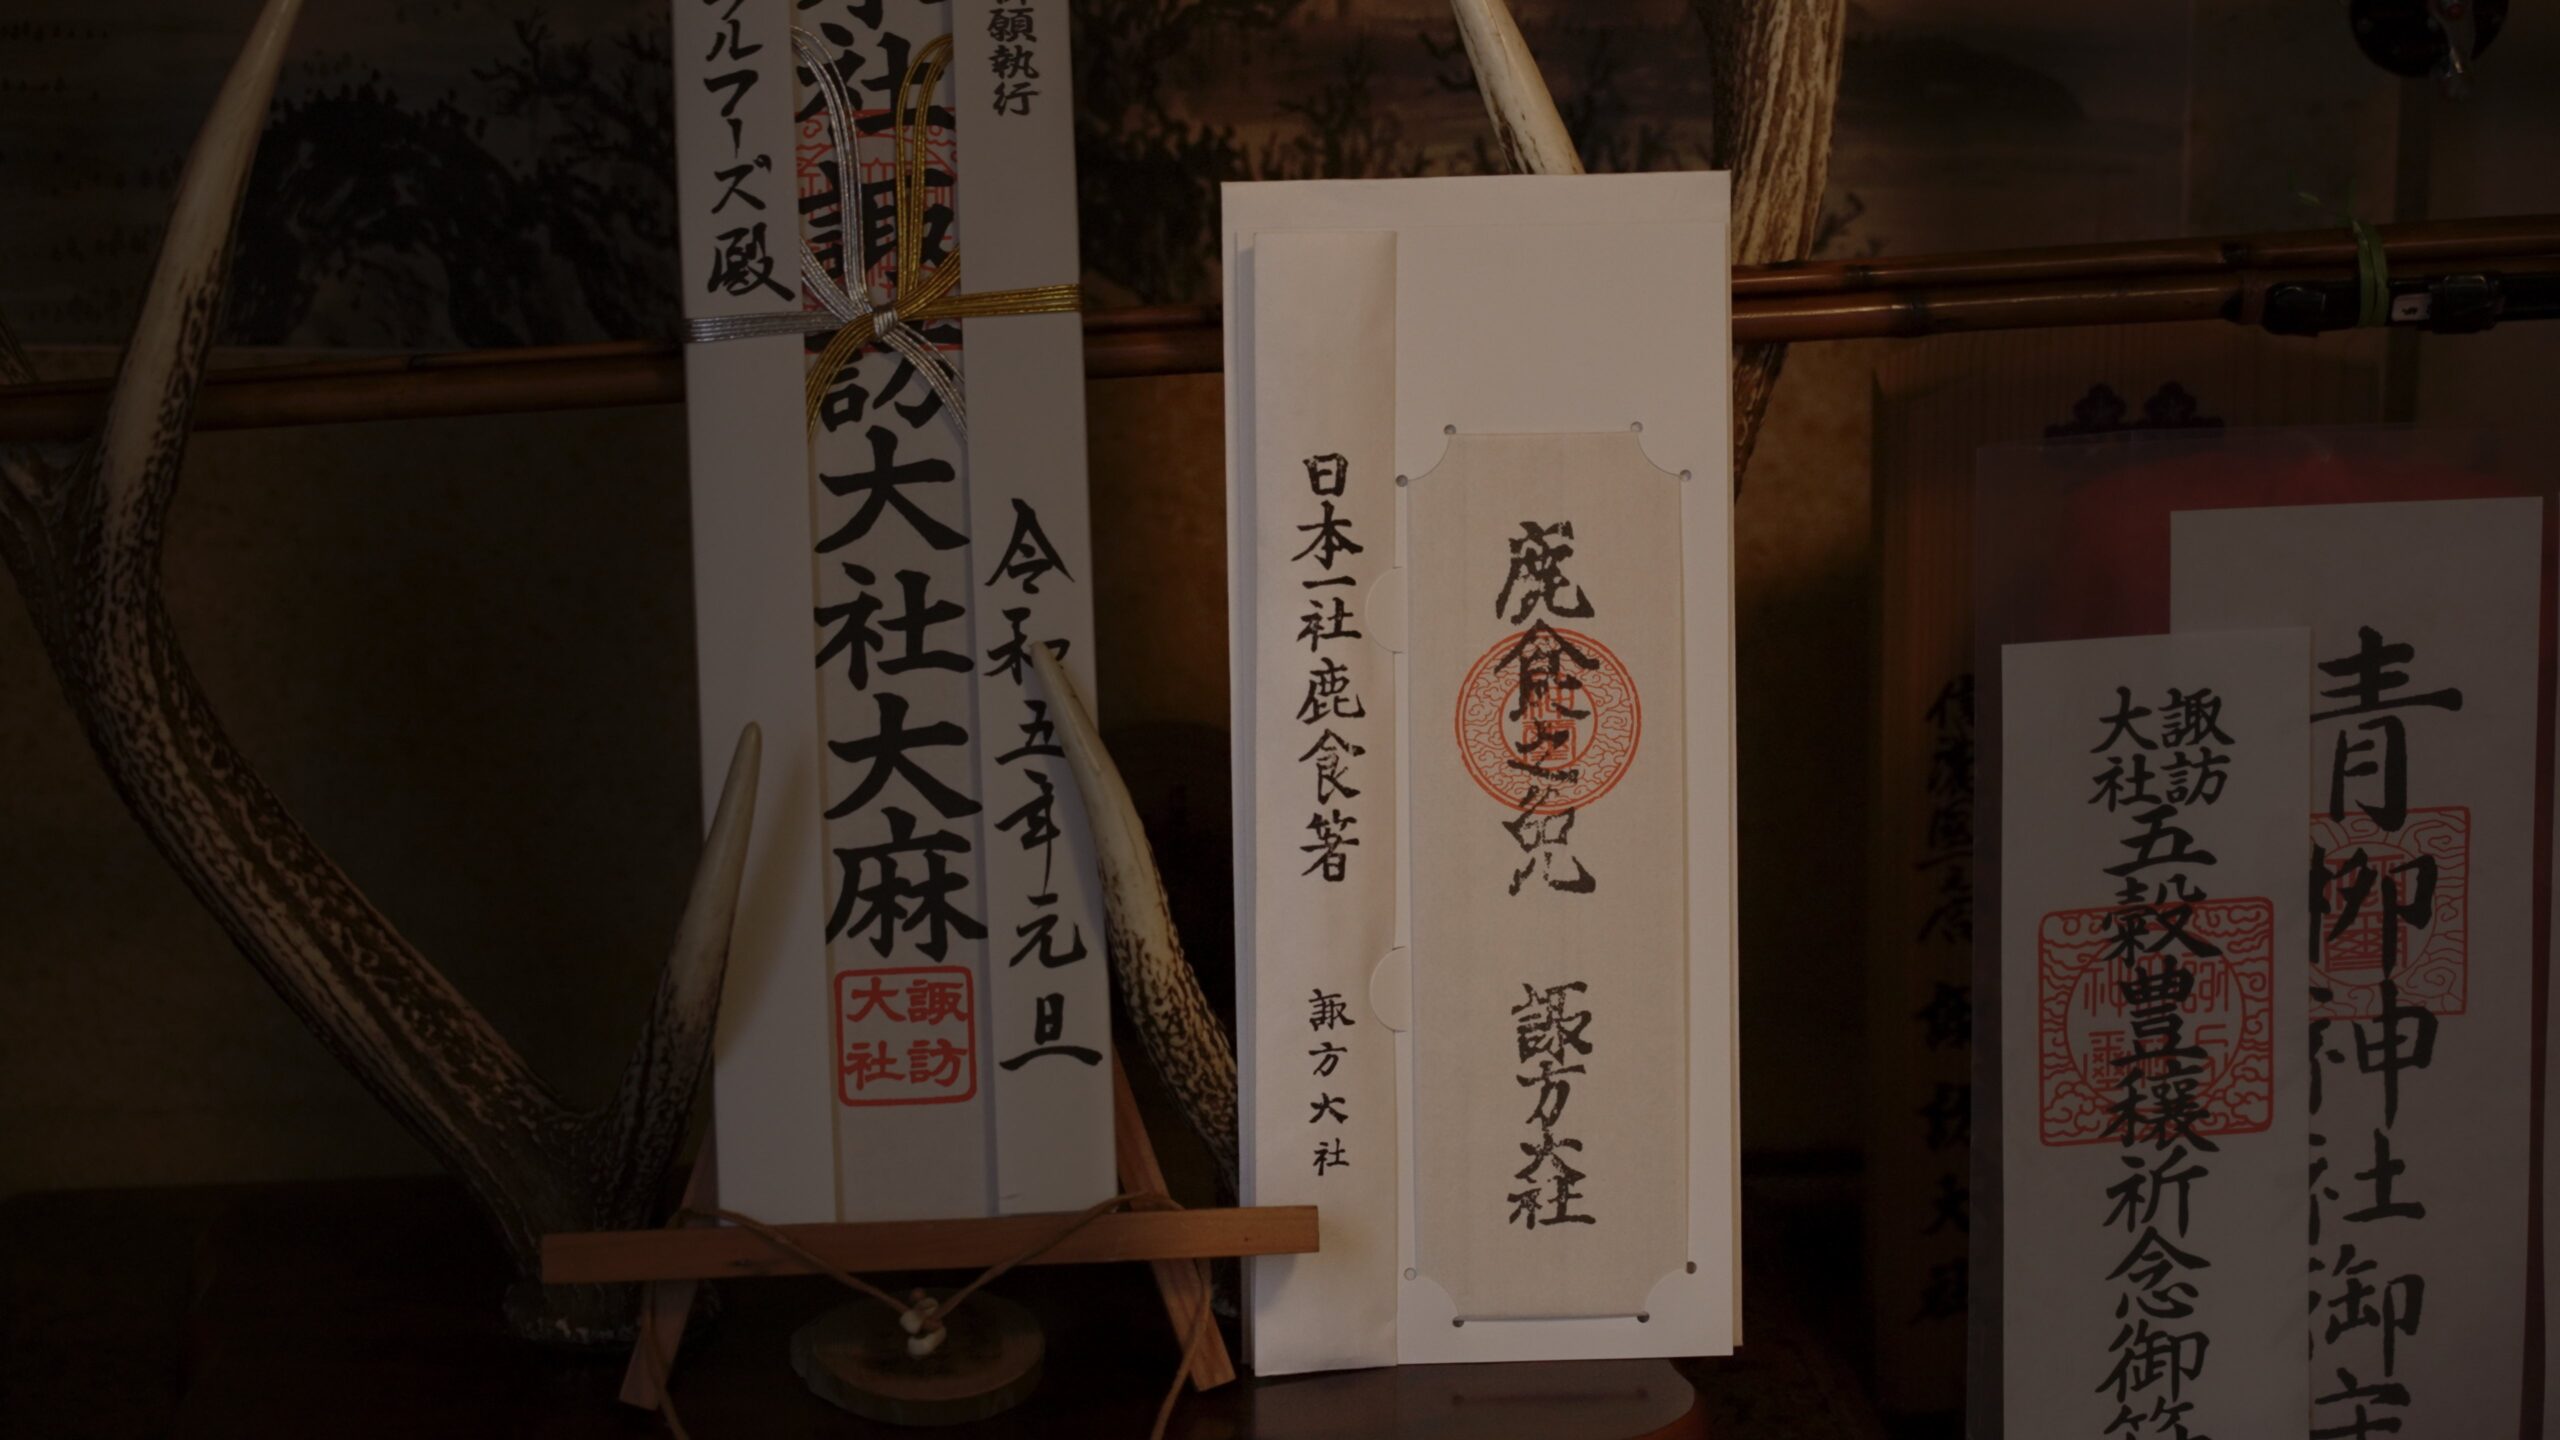 願執行
令和五年元旦
社諏訪大社大麻
諏訪
大社
ルフーズ殿
鹿食之免 諏方大社
日本一社鹿食箸 諏方大社
青柳神社御
諏訪
大社
五穀豊穣祈念御